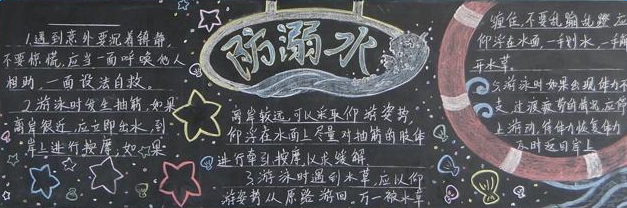 防溺水
1.遇到意外要沉着镇静,
不要惊慌,应当一面呼唤他人
相助,一面设法自救。
2.游泳时发生抽筋,如果
离岸很近,应立即出水,到
岸上进行按摩;如果
离岸较远,可以采取仰游姿势,
仰浮在水面上尽量对抽筋的肢体
进行牵引按摩,以求缓解。
3.游泳时遇到水草,应以仰
游姿势从原路游回,万一被水草
缠住,不要乱蹦乱蹬,应
仰浮在水面,一手划水,一手解
开水草,
5.游泳时如果出现体力不
支、过度疲劳的情况,应停
上游动,待体力恢复
及时返回岸上